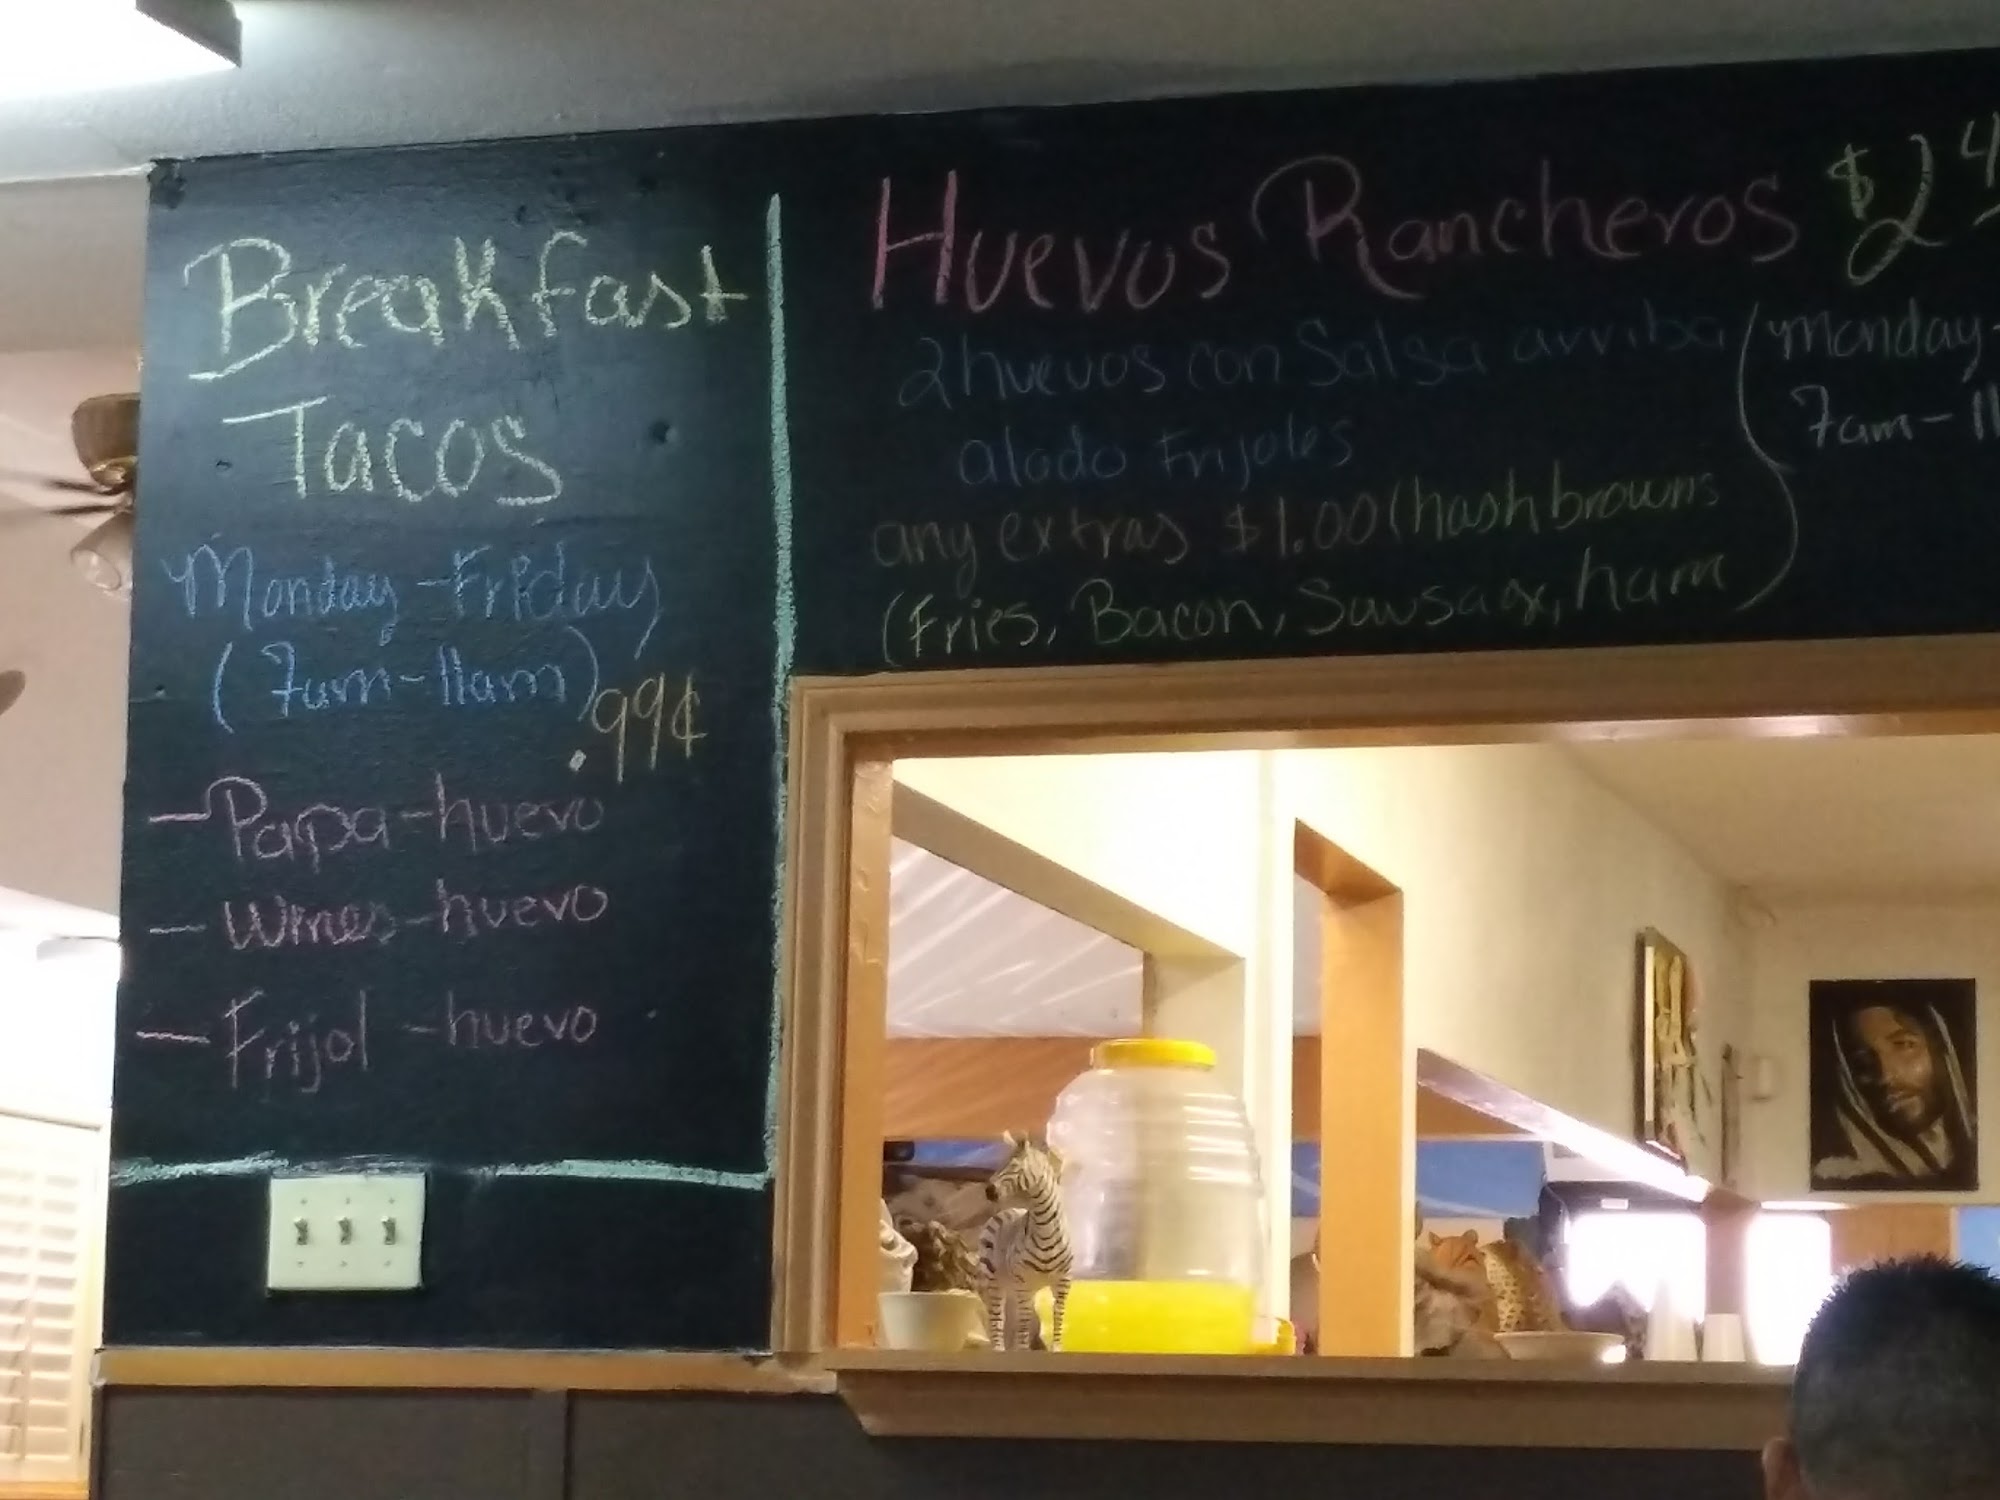 Breakfast
Tacos
Monday-Friday
(7am-11am)
.99¢
-Papa-huevo
- Wines-huevo
- Frijol -huevo
Huevos Rancheros $2 4
2 huevos con Salsa arriba
alado Frijoles
any extras $1.00 (hashbrowns
(Fries, Bacon, Sausage, ham)
(Monday-
7am-11